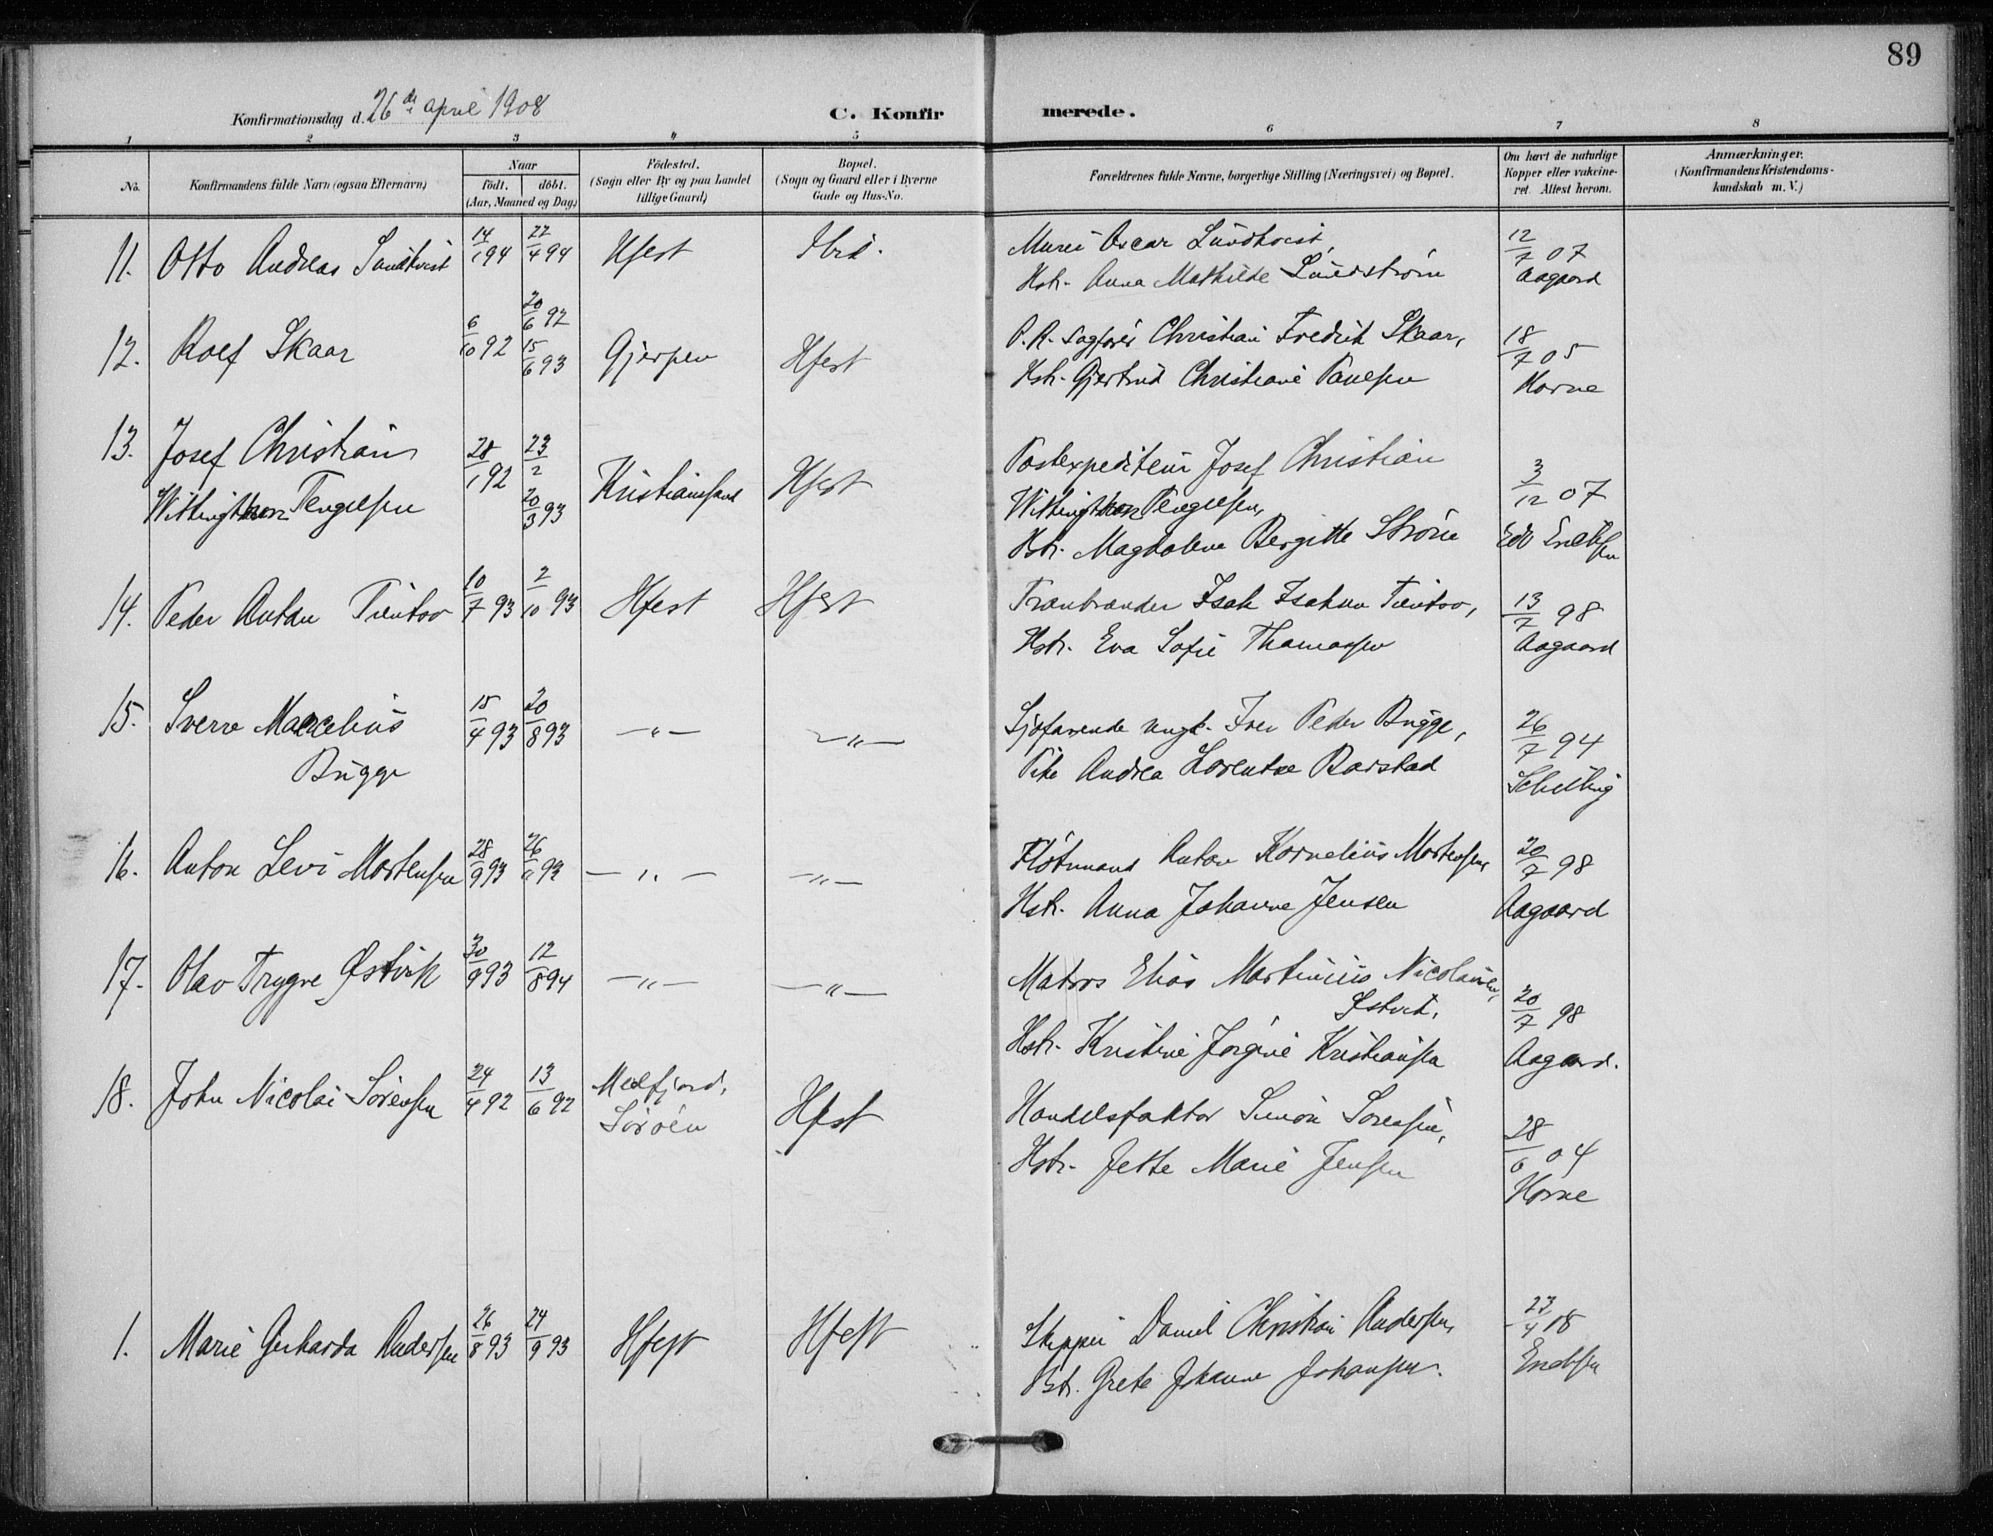 89
Konfirmationsdag d. 26de april 1908
C. Konfirmerede.
1 2 3 4 5 6 7 8
No.
Konfirmandens fulde Navn (ogsaa Efternavn)
Naar
födt. döbt.
(Aar, Maaned og Dag)
Födested.
(Sogn eller By og paa Landet
tillige Gaard)
Bopæl.
(Sogn og Gaard eller i Byerne
Gade og Hus-No.
Forældrenes fulde Navne, borgerlige Stilling (Næringsvei) og Bopæl.
Om havt de naturlige
Kopper eller vakcine-
ret. Attest herom.
Anmærkninger.
(Konfirmandens Kristendoms-
kundskab m. V.)
11. Otto Andreas Sundkvist 14/1 94 22/4 94 Hfest Ibid.
Murer Oscar Sundkvist,
Hstr. Anna Mathilde Lundström
12/7 07
Aagaard
12. Rolf Skaar 6/10 92 20/6 92 15/6 93 Gjerpen Hfest
O.R. Sagförer Christian Fredrik Skaar,
Hstr. Gjertrud Christiane Paulsen
18/7 05
Horne
13. Josef Christian
Tengelsen 28/1 92 23/2 20/3 93 Kristianssand Hfest
Postexpediteur Josef Christian
Tengelsen,
Hstr. Magdalene Bergitte Ström
3/12 07
14. Peder Antan 10/7 93 2/10 93 Hfest Hfest
Tranbrænder Isak Isaksen
Hstr. Eva Sofie Thomassen
13/7 98
Aagaard
15. Sverre Marcelius
Brügge 15/4 93 20/8 93 —"— —"—
Sjöfarende Ungk. Iver Peder Brügge,
Pike Andrea Lorentze Barstad
26/7 94
Schelling
16. Anton Levi Mortensen 28/9 93 —"— —"—
Flötmand Anton Kornelius Mortensen
Hstr. Anna Johanne Jensen
20/7 98
Aagaard
17. Olav Trygve Østvik 30/9 93 12/8 94 —"— —"—
Matros Elias Martinius Nicolaisen,
Østvik,
Hstr. Kristine Jörgine Kristiansen
20/7 98
Aagaard.
18. John Nicolai Sörensen 24/4 92 13/6 92 Mefjord,
Söröen Hfest
Handelsfaktor Simon Sörensen,
Hstr. Jette Marie Jensen
28/6 04
Horne
1. Marie Gerharda Andersen 26/8 93 24/9 93 Hfest Hfest
Skipper Daniel Christian Andersen,
Hstr. Grete Johanne Johansen.
23/4 08